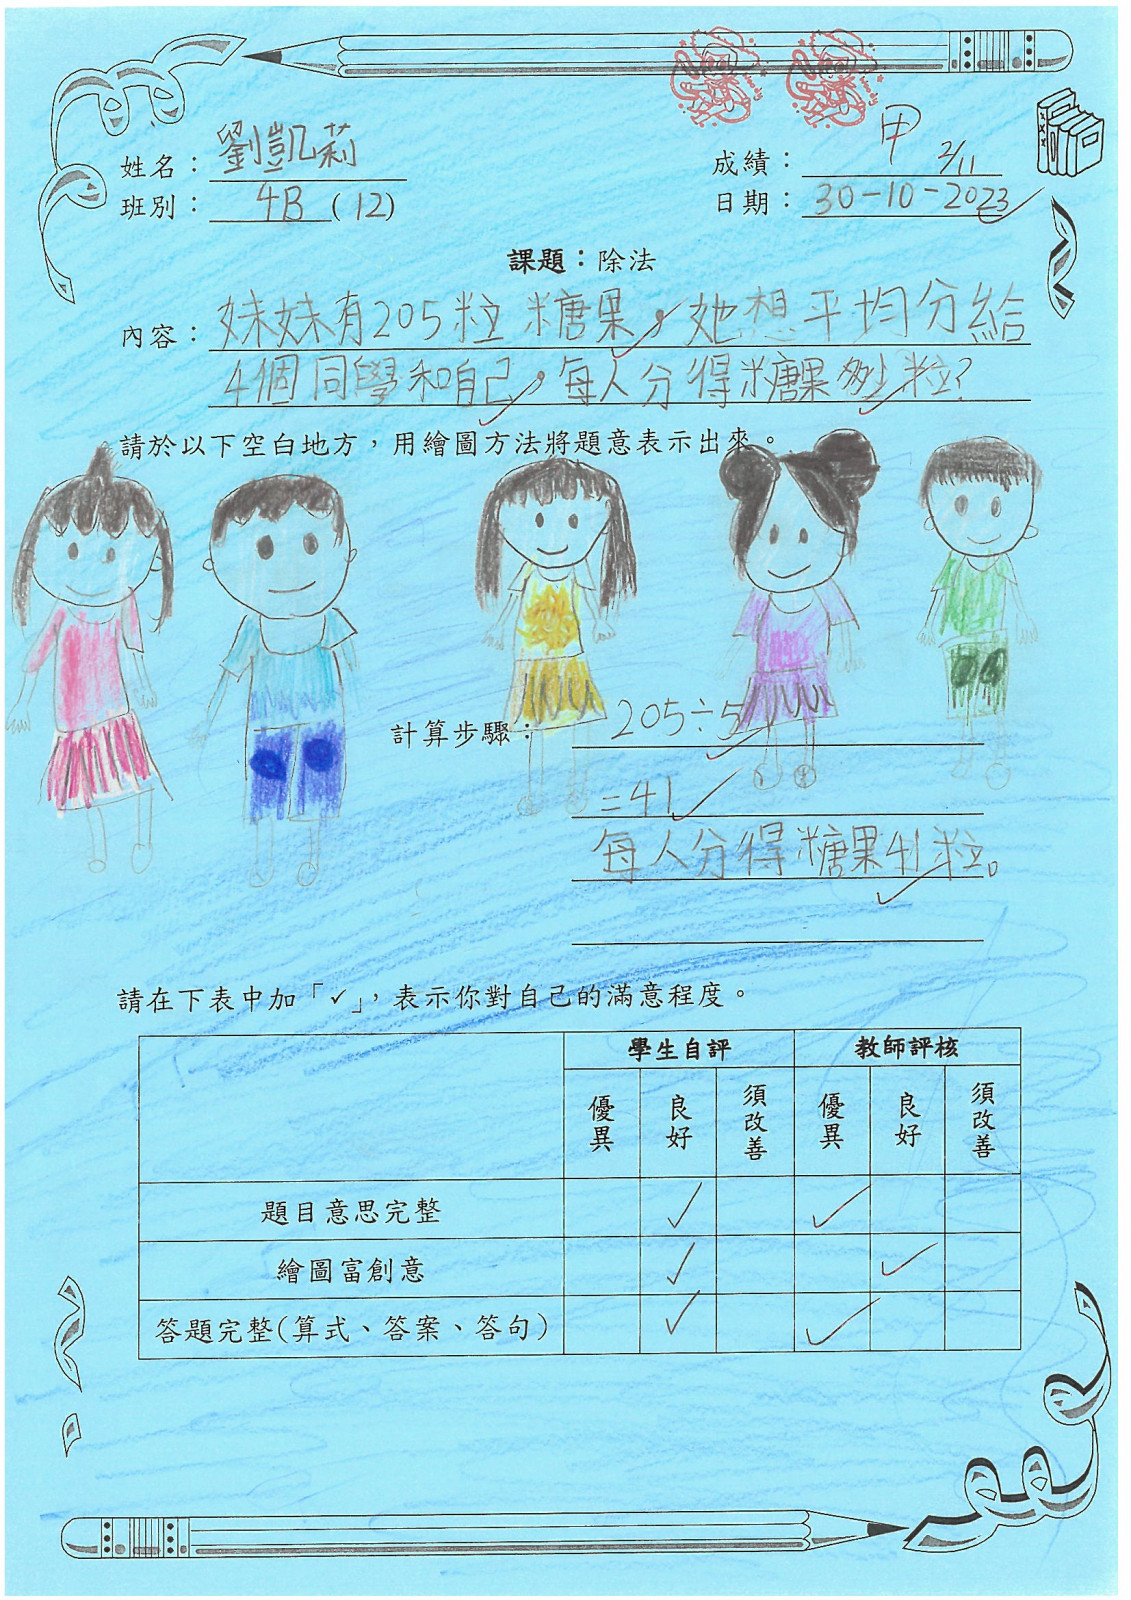 姓名：劉凱莉
成績：甲 2/11
班別：4B (12)
日期：30-10-2023
課題：除法
內容：妹妹有205粒糖果，她想平均分給
4個同學和自己，每人分得糖果多少粒？
請於以下空白地方，用繪圖方法將題意表示出來。
計算步驟：205÷5
=41
每人分得糖果41粒。
請在下表中加「✓」，表示你對自己的滿意程度。
學生自評 教師評核
優異 良好 須改善 優異 良好 須改善
題目意思完整 ✓ ✓
繪圖富創意 ✓ ✓
答題完整(算式、答案、答句) ✓ ✓